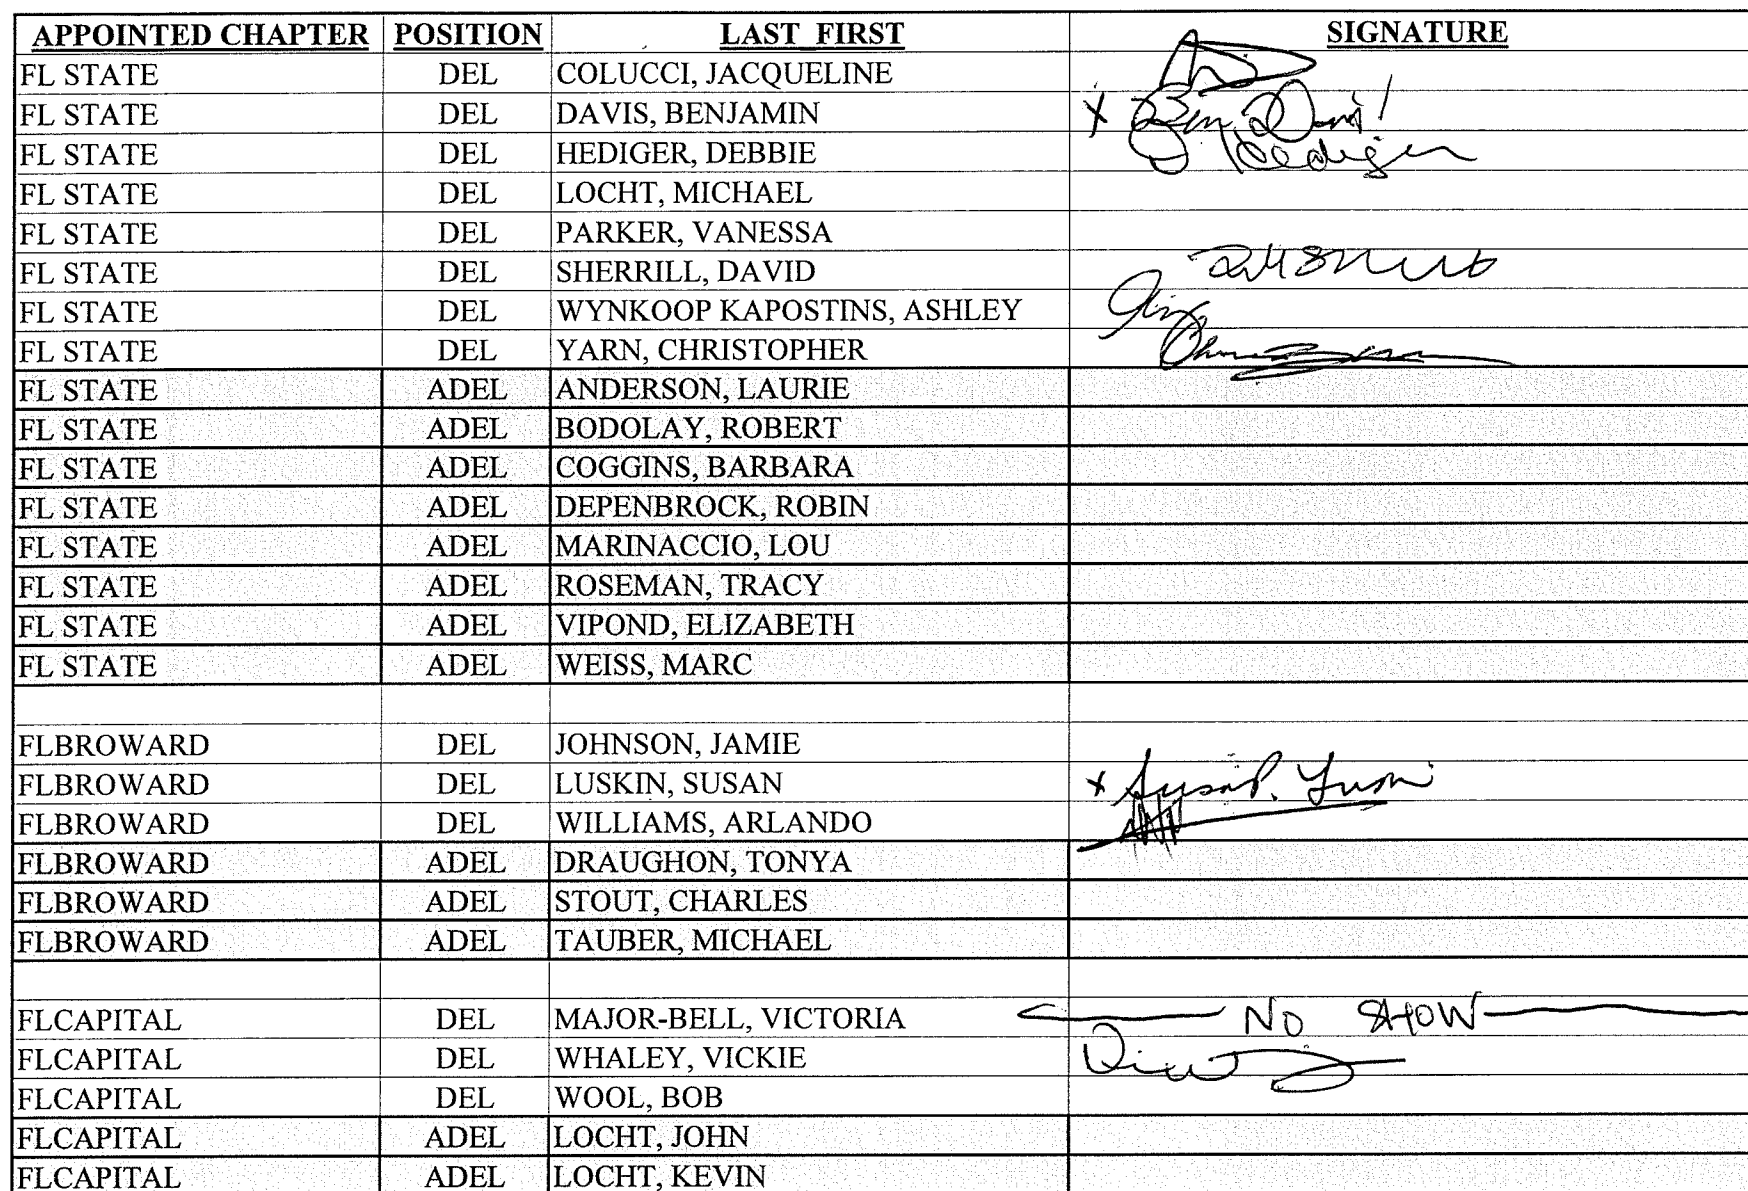 APPOINTED CHAPTER POSITION LAST_FIRST SIGNATURE
FL STATE DEL COLUCCI, JACQUELINE
FL STATE DEL DAVIS, BENJAMIN x Ben Davis
FL STATE DEL HEDIGER, DEBBIE Hediger
FL STATE DEL LOCHT, MICHAEL
FL STATE DEL PARKER, VANESSA
FL STATE DEL SHERRILL, DAVID
FL STATE DEL WYNKOOP KAPOSTINS, ASHLEY
FL STATE DEL YARN, CHRISTOPHER
FL STATE ADEL ANDERSON, LAURIE
FL STATE ADEL BODOLAY, ROBERT
FL STATE ADEL COGGINS, BARBARA
FL STATE ADEL DEPENBROCK, ROBIN
FL STATE ADEL MARINACCIO, LOU
FL STATE ADEL ROSEMAN, TRACY
FL STATE ADEL VIPOND, ELIZABETH
FL STATE ADEL WEISS, MARC
FLBROWARD DEL JOHNSON, JAMIE
FLBROWARD DEL LUSKIN, SUSAN x Susan P.
FLBROWARD DEL WILLIAMS, ARLANDO
FLBROWARD ADEL DRAUGHON, TONYA
FLBROWARD ADEL STOUT, CHARLES
FLBROWARD ADEL TAUBER, MICHAEL
FLCAPITAL DEL MAJOR-BELL, VICTORIA NO SHOW
FLCAPITAL DEL WHALEY, VICKIE
FLCAPITAL DEL WOOL, BOB
FLCAPITAL ADEL LOCHT, JOHN
FLCAPITAL ADEL LOCHT, KEVIN